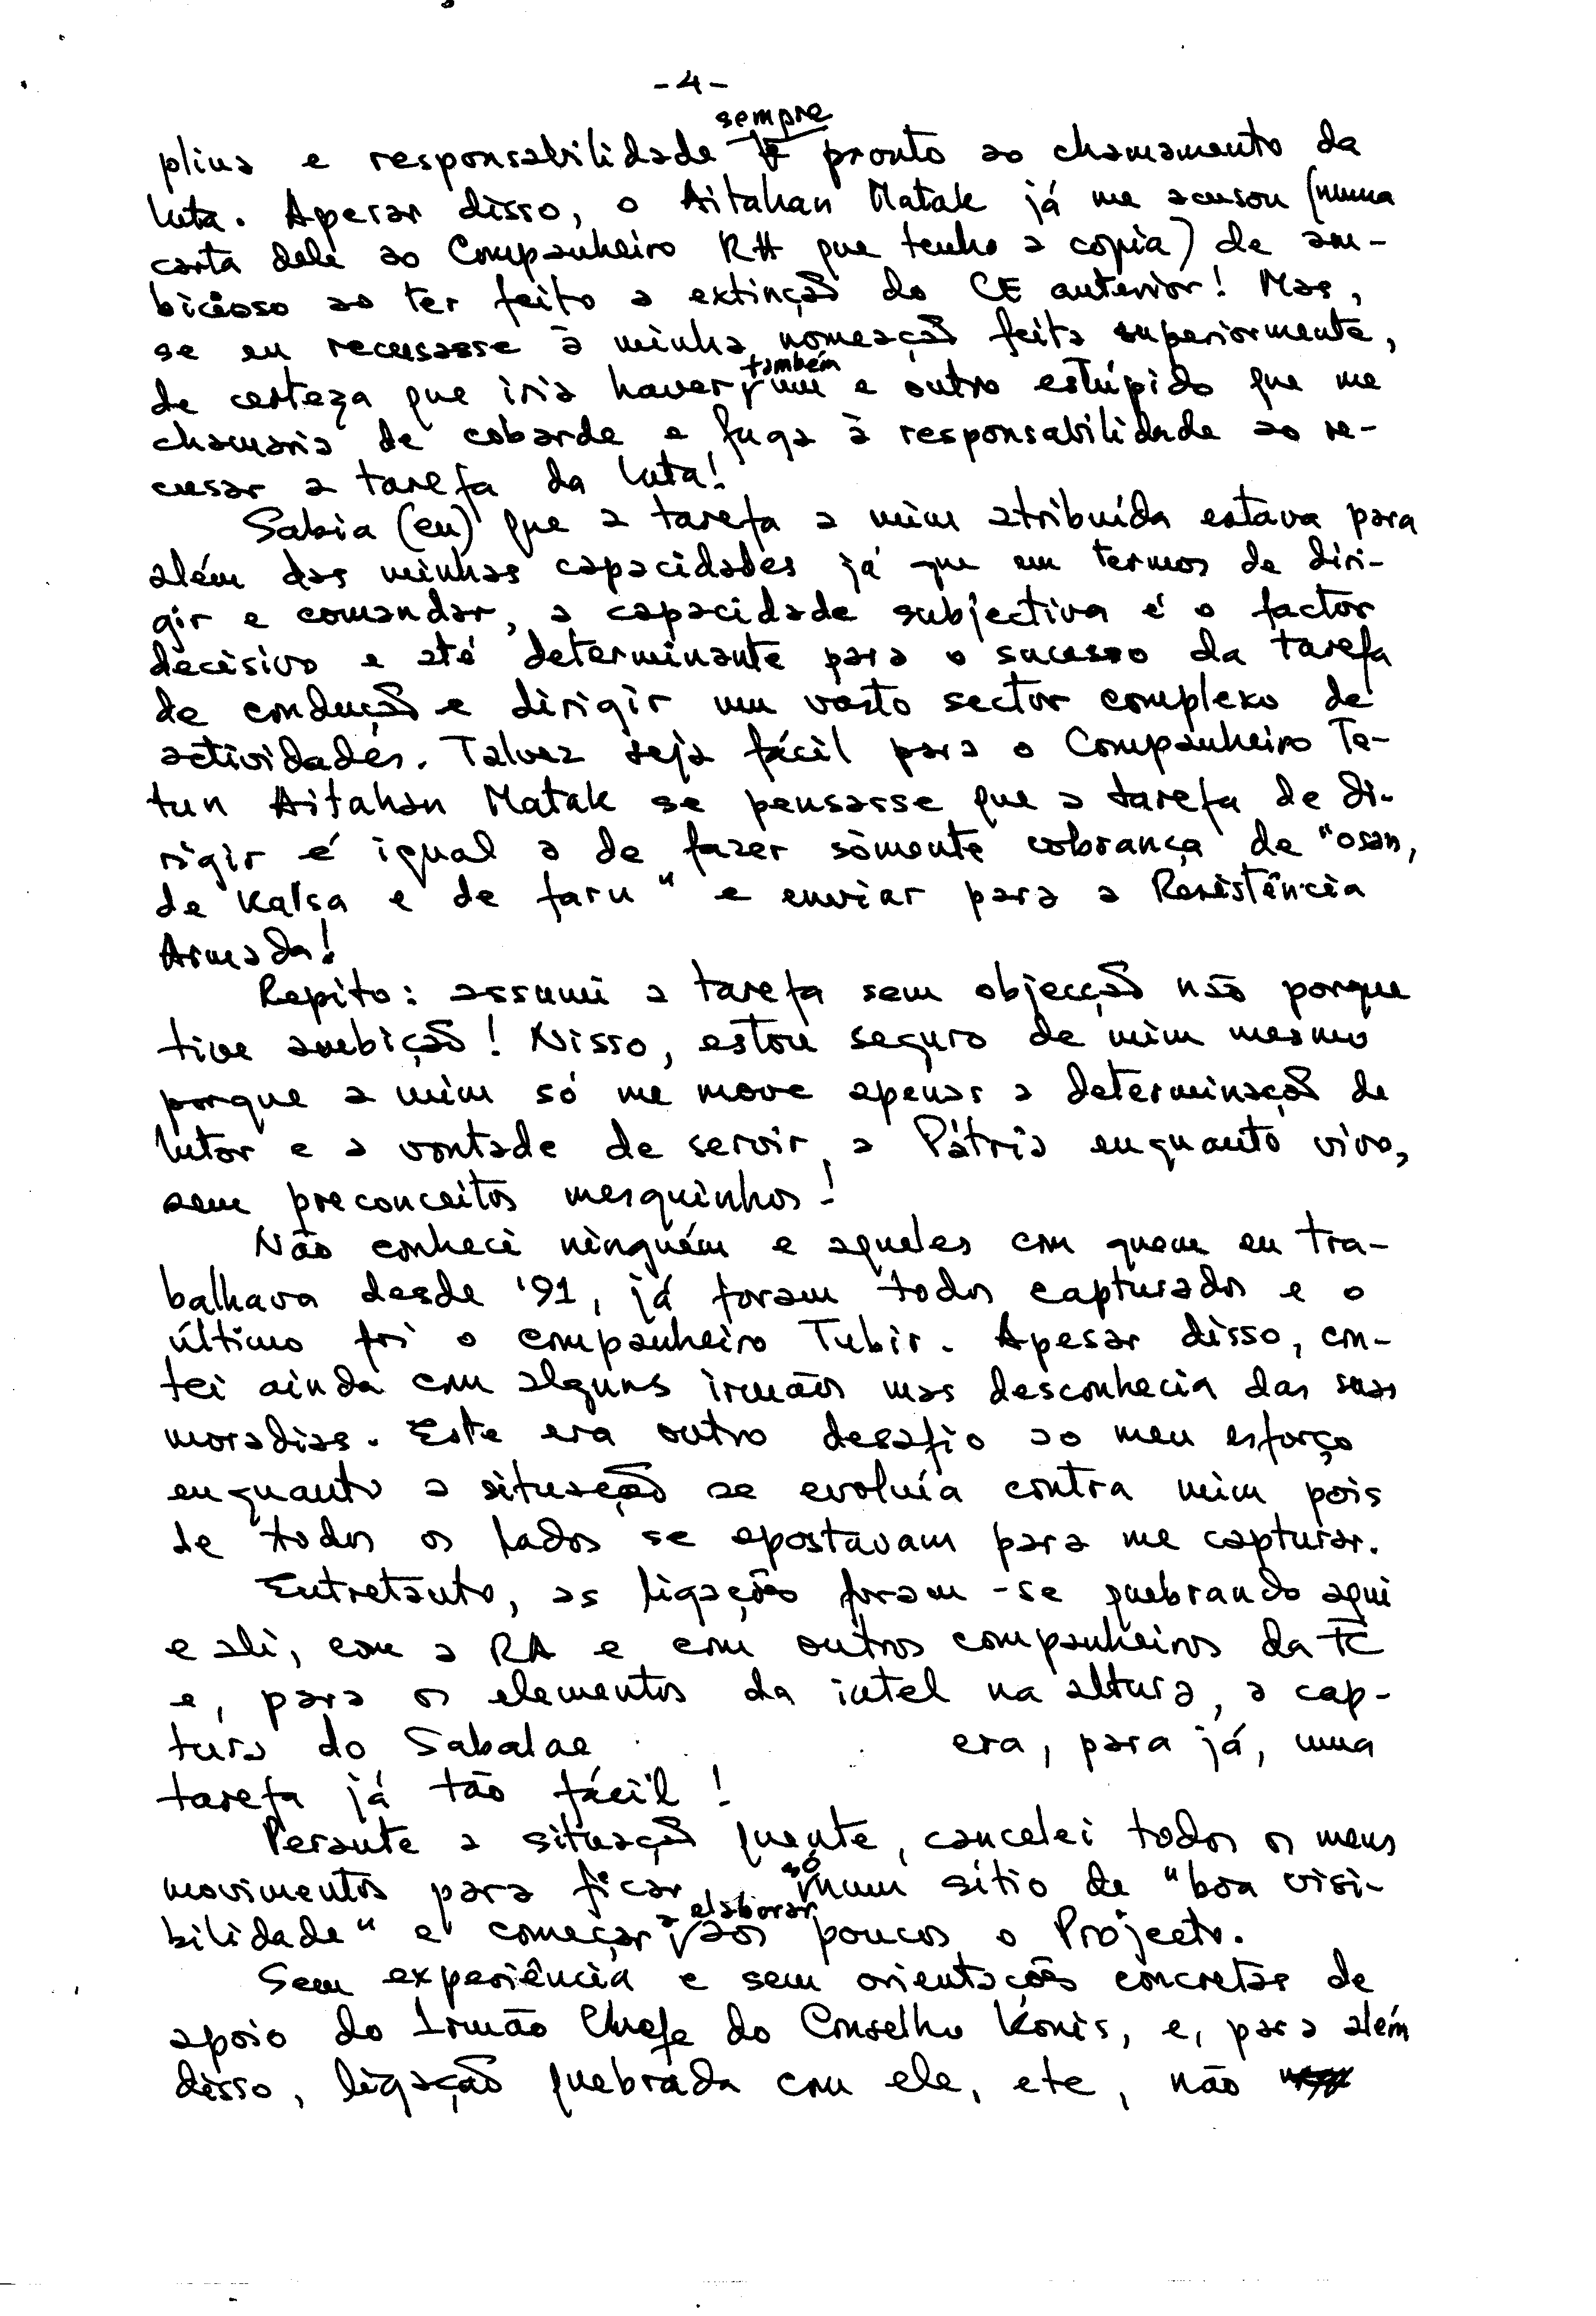 -4-
sempre
plina e responsabilidade pronto ao chamamento da
luta. Apesar disso, o Aitahan Matak já me acusou (numa
carta dele ao Companheiro RH que tenho a copia) de am-
bicioso ao ter feito a extinção do CE anterior! Mas,
se eu recusasse à minha nomeação feita superiormente,
também
de certeza que iria haver um e outro estúpido que me
chamaria de cobarde e fuga à responsabilidade ao re-
cusar a tarefa da luta!
Sabia (eu) que a tarefa a mim atribuída estava para
além das minhas capacidades já que em termos de diri-
gir e comandar, a capacidade subjectiva é o factor
decisivo e até determinante para o sucesso da tarefa
de condução e dirigir um vasto sector complexo de
actividades. Talvez seja fácil para o Companheiro Te-
tun Aitahan Matak se pensasse que a tarefa de di-
rigir é igual a de fazer sòmente cobrança de "osan,
de kalsa e de faru" e enviar para a Resistência
Armada!
Repito: assumi a tarefa sem objecção não porque
tive ambição! Nisso, estou seguro de mim mesmo
porque a mim só me move apenas a determinação de
lutar e a vontade de servir a Pátria enquanto vivo,
sem preconceitos mesquinhos!
Não conheci ninguém e aqueles com quem eu tra-
balhava desde '91, já foram todos capturados e o
último foi o companheiro Tubir. Apesar disso, con-
tei ainda com alguns irmãos mas desconhecia das suas
moradias. Este era outro desafio ao meu esforço
enquanto a situação se evoluía contra mim pois
de todos os lados se apostavam para me capturar.
Entretanto, as ligações foram-se quebrando aqui
e ali, com a RA e com outros companheiros da FC
e, para os elementos da intel na altura, a cap-
tura do Sabalae era, para já, uma
tarefa já tão fácil!
Perante a situação quente, cancelei todos os meus
só
movimentos para ficar num sítio de "boa visi-
a elaborar
bilidade" e começar aos poucos o Projecto.
Sem experiência e sem orientações concretas de
apoio do Irmão Chefe do Conselho Konis, e, para além
disso, ligação quebrada com ele, etc, não